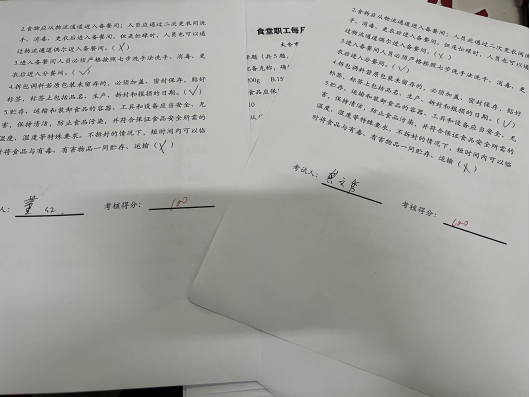 2.食物应从物流通道进入备餐间；人员应通过二次更衣间洗
手、消毒、更衣后进入备餐间。但是忙碌时，人员也可以通
过物流通道偶尔进入备餐间。(X)
3.进入备餐间人员必须严格按照七步洗手法洗手、消毒、更
衣后进入分餐间。(√)
4.拆包调料若原包装未留存的，必须加盖，密封保存，贴好
标签，标签上包括品名、生产、拆封和报损的日期。(√)
5.贮存、运输和装卸食品的容器、工具和设备应当安全、无
害，保持清洁，防止食品污染，并符合保证食品安全所需的
温度、湿度等特殊要求。不拆封的情况下，短时间内可以临
时将食品与有毒、有害物品一同贮存、运输(X)
人：
考核得分：100
食堂职工每月
太仓市
(共5题，
200g B.15
食品应保
10
2.食物应从物流通道进入备餐间；人员应通过二次更衣间洗
手、消毒、更衣后进入备餐间。但是忙碌时，人员也可以通
过物流通道偶尔进入备餐间。(X)
3.进入备餐间人员必须严格按照七步洗手法洗手、消毒、更
衣后进入分餐间。(√)
4.拆包调料若原包装未留存的，必须加盖，密封保存，贴好
标签，标签上包括品名、生产、拆封和报损的日期。(√)
5.贮存、运输和装卸食品的容器、工具和设备应当安全、无
害，保持清洁，防止食品污染，并符合保证食品安全所需的
温度、湿度等特殊要求。不拆封的情况下，短时间内可以临
时将食品与有毒、有害物品一同贮存、运输(X)
考试人：
考核得分：100